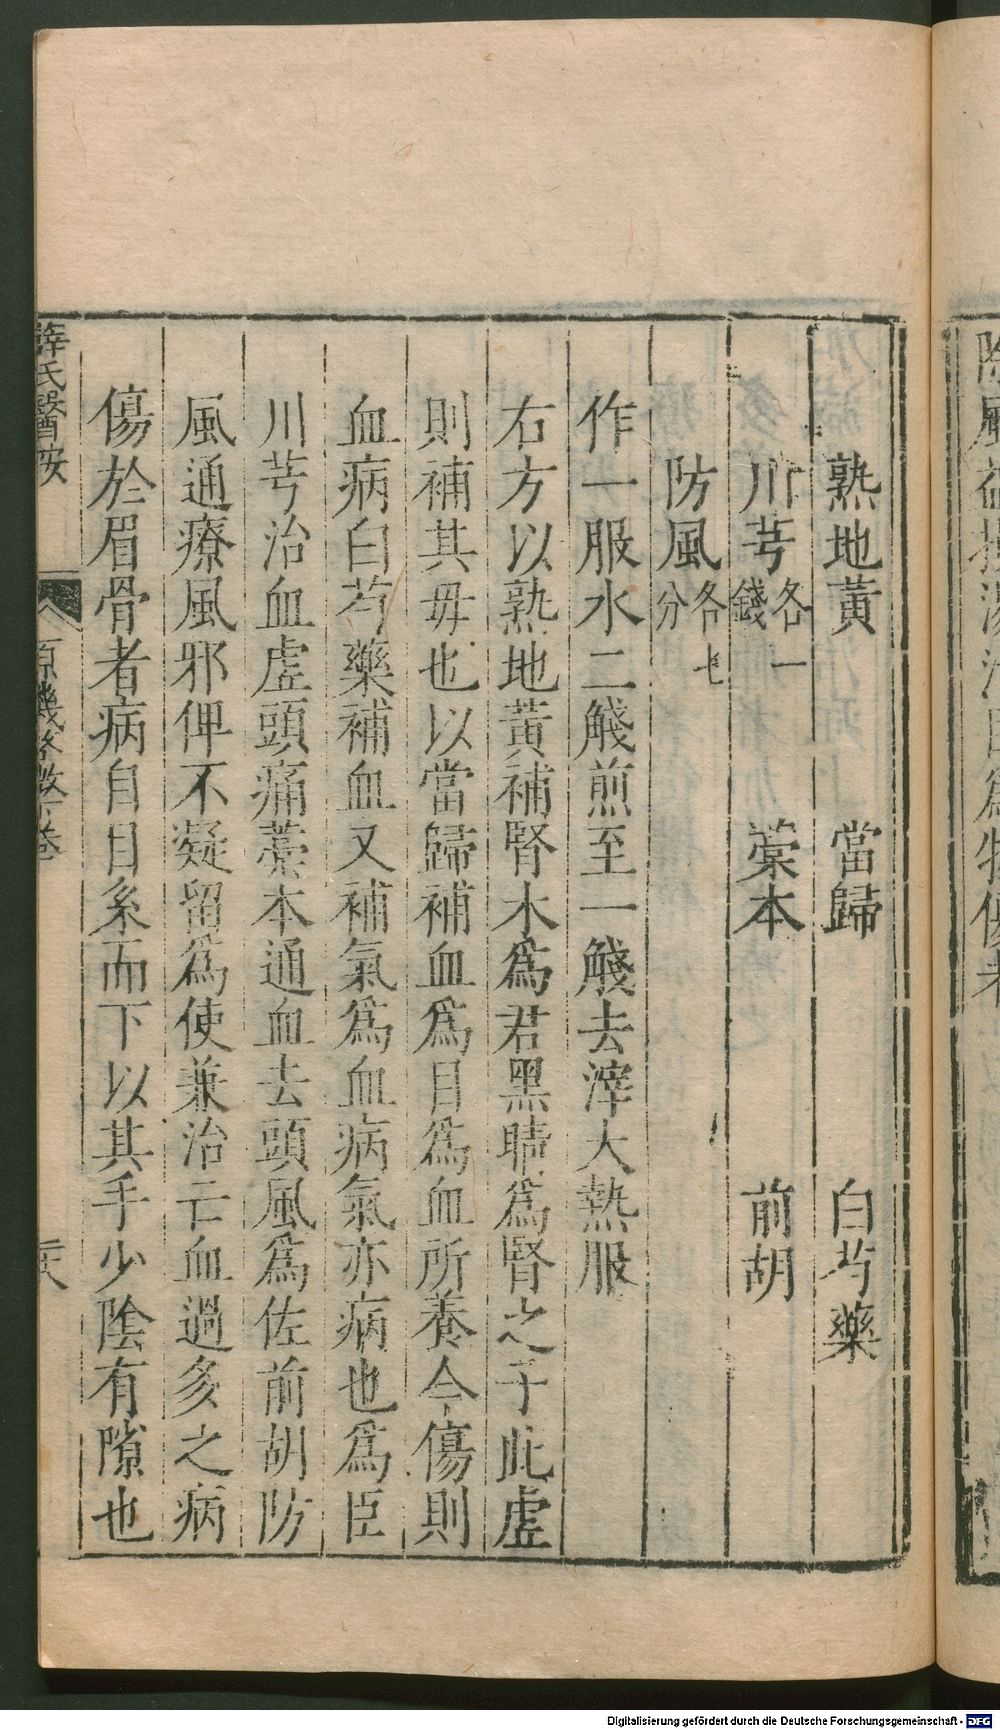 熟地黃　當歸　白芍藥
川芎　藁本　前胡各一錢
防風各七分
作一服水二餞煎至一餞去滓大熱服
右方以熟地黃補腎水爲君黑睛爲腎之子此虛
則補其毋也以當歸補血爲目爲血所養今傷則
血病白芍藥補血又補氣爲血病氣亦病也爲臣
川芎治血虛頭痛藁本通血去頭風爲佐前胡防
風通療風邪俾不凝留爲使兼治亡血過多之病
傷於眉骨者病自目系而下以其手少陰有隙也
薛氏醫按
原機啓微下卷
二十八
Digitalisierung gefördert durch die Deutsche Forschungsgemeinschaft - DFG